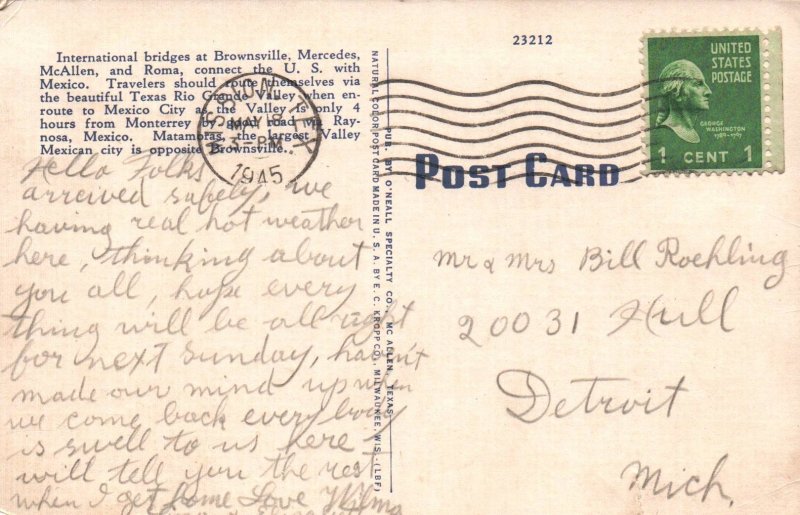 23212
UNITED
STATES
POSTAGE
GEORGE
WASHINGTON
1789-1797
1 CENT 1
International bridges at Brownsville, Mercedes,
McAllen, and Roma, connect the U. S. with
Mexico. Travelers should route themselves via
the beautiful Texas Rio Grande Valley when en-
route to Mexico City as the Valley is only 4
hours from Monterrey by good road via Ray-
nosa, Mexico. Matamoras, the largest Valley
Mexican city is opposite Brownsville.
MAY 18
1945
Hello Folks
arreived safely, we
having real hot weather
here, thinking about
you all, hope every
thing will be all right
for next Sunday, havn't
made our mind up when
we come back every body
is swell to us here
will tell you the rest
when I get home Love Wilma
NATURAL COLOR POST CARD MADE IN U. S. A. BY E. C. KROPP CO., MILWAUKEE, WIS. (LBF)
PUB. BY O'NEALL SPECIALTY CO., MC ALLEN, TEXAS
POST CARD
Mr & Mrs Bill Roehling
20031 Hull
Detroit
Mich.